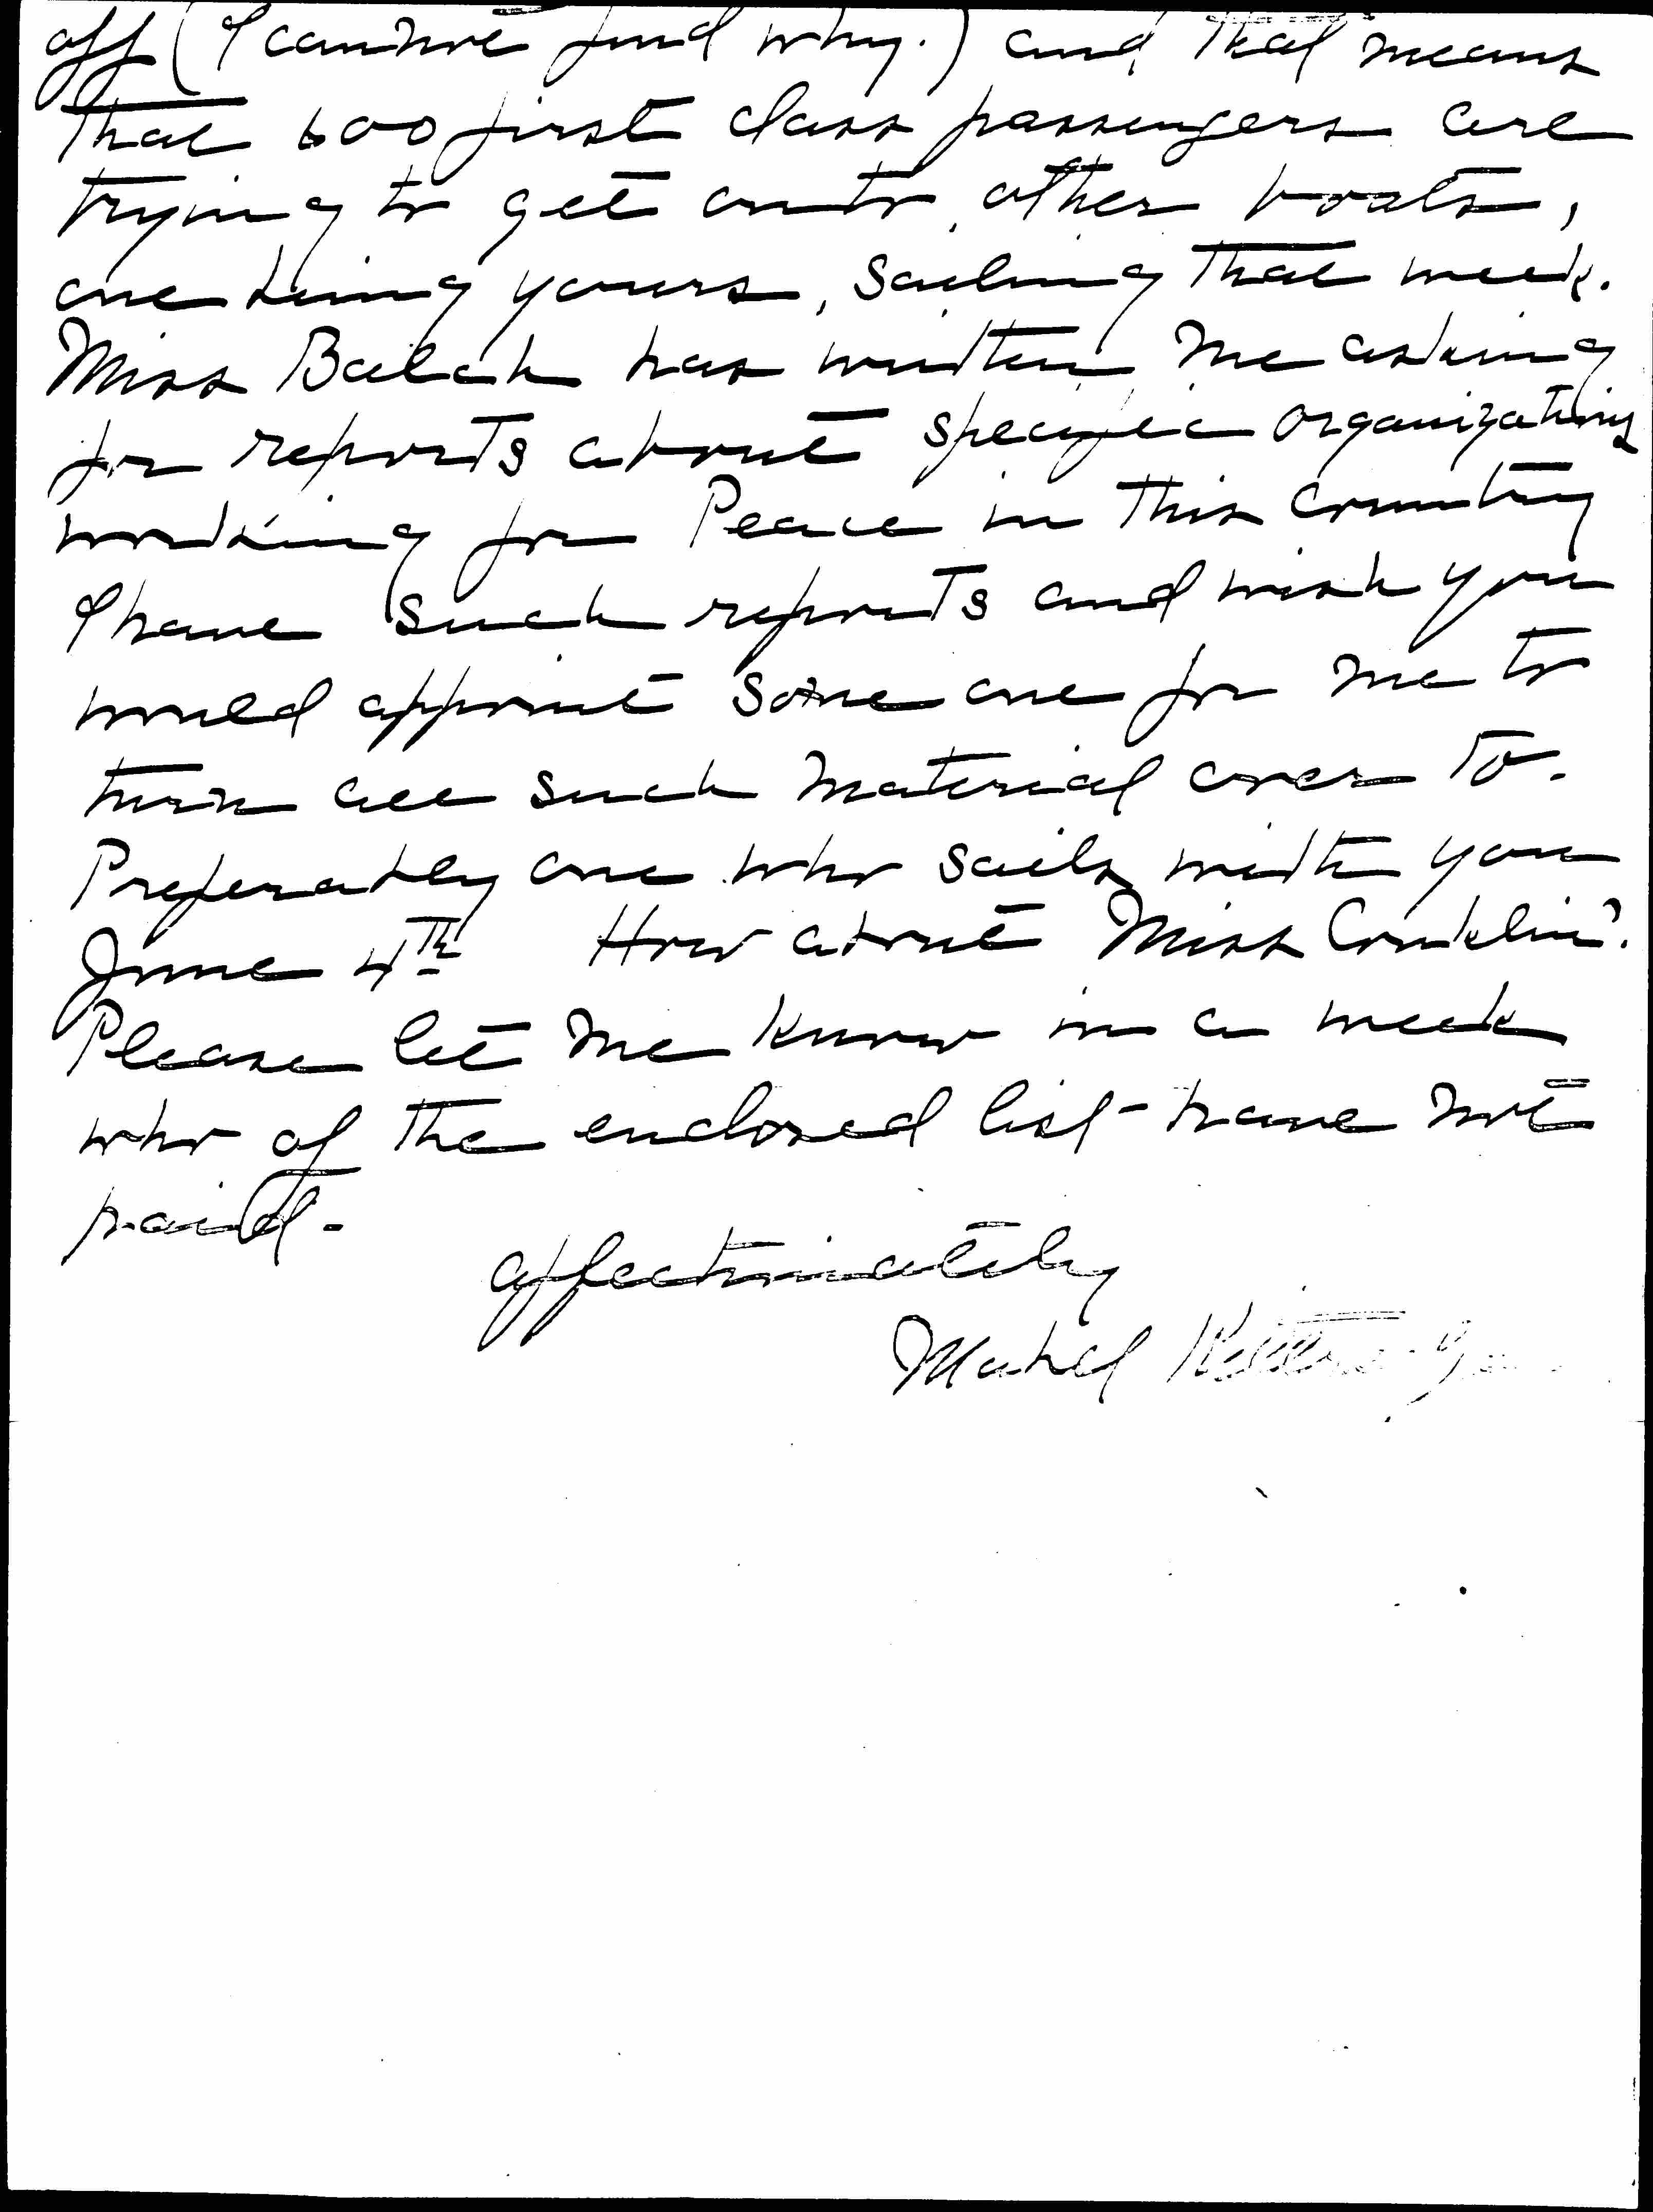 off (I cannot find why.) and that means
that 600 first class passengers are
trying to get onto other boats,
one being yours, sailing that week.
Miss Balch has written me asking
for reports about specific organizations
working for Peace in this country
I have such reports and wish you
would appoint some one for me to
turn all such material over to.
Preferably one who sails with you
June 4th How about Miss Conklin?
Please let me know in a week
who of the enclosed list - have not
paid -
affectionately
Mabel